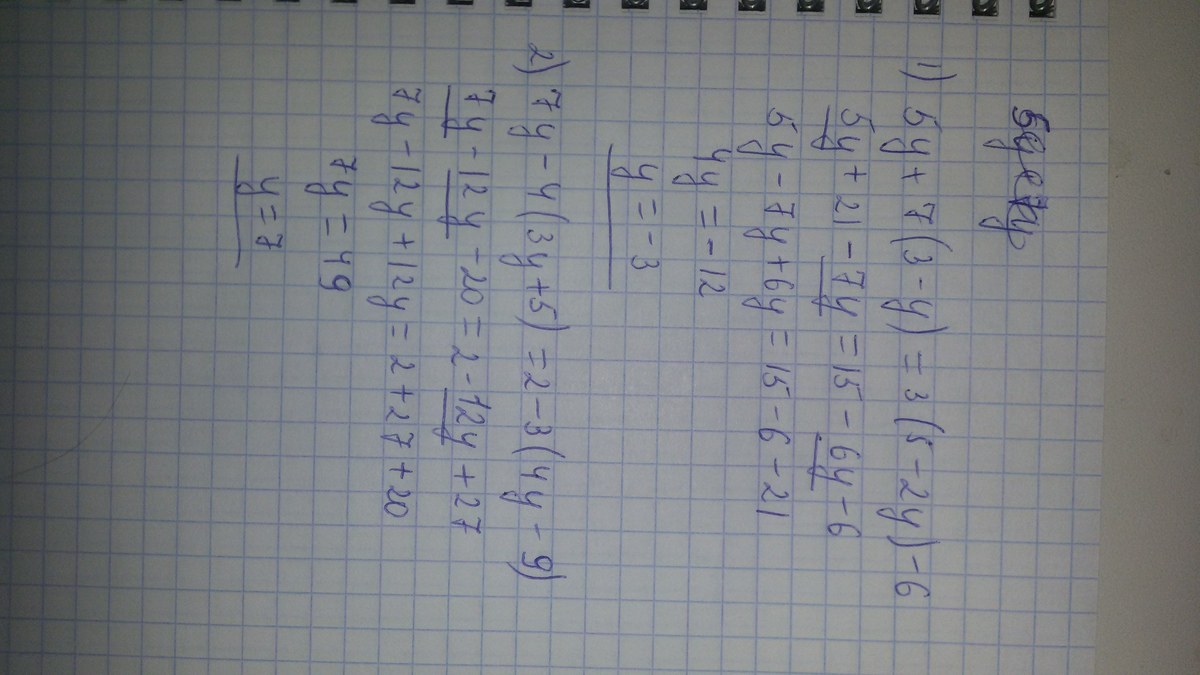 1) 5y + 7(3 - y) = 3(5 - 2y) - 6
5y + 21 - 7y = 15 - 6y - 6
5y - 7y + 6y = 15 - 6 - 21
4y = -12
y = -3
2) 7y - 4(3y + 5) = 2 - 3(4y - 9)
7y - 12y - 20 = 2 - 12y + 27
7y - 12y + 12y = 2 + 27 + 20
7y = 49
y = 7